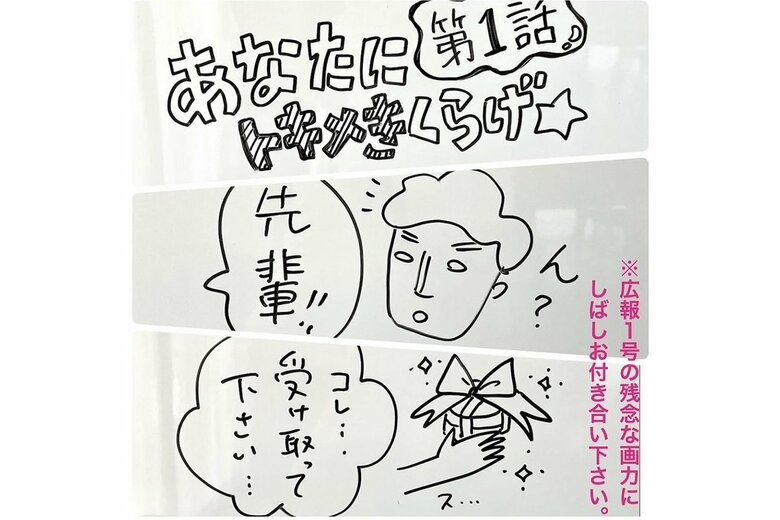 第1話♪
あなたに
ドキメきくらげ☆
先輩!!
ん?
コレ…
受け取って
下さい…
ス…
※広報1号の残念な画力に
しばしお付き合い下さい。